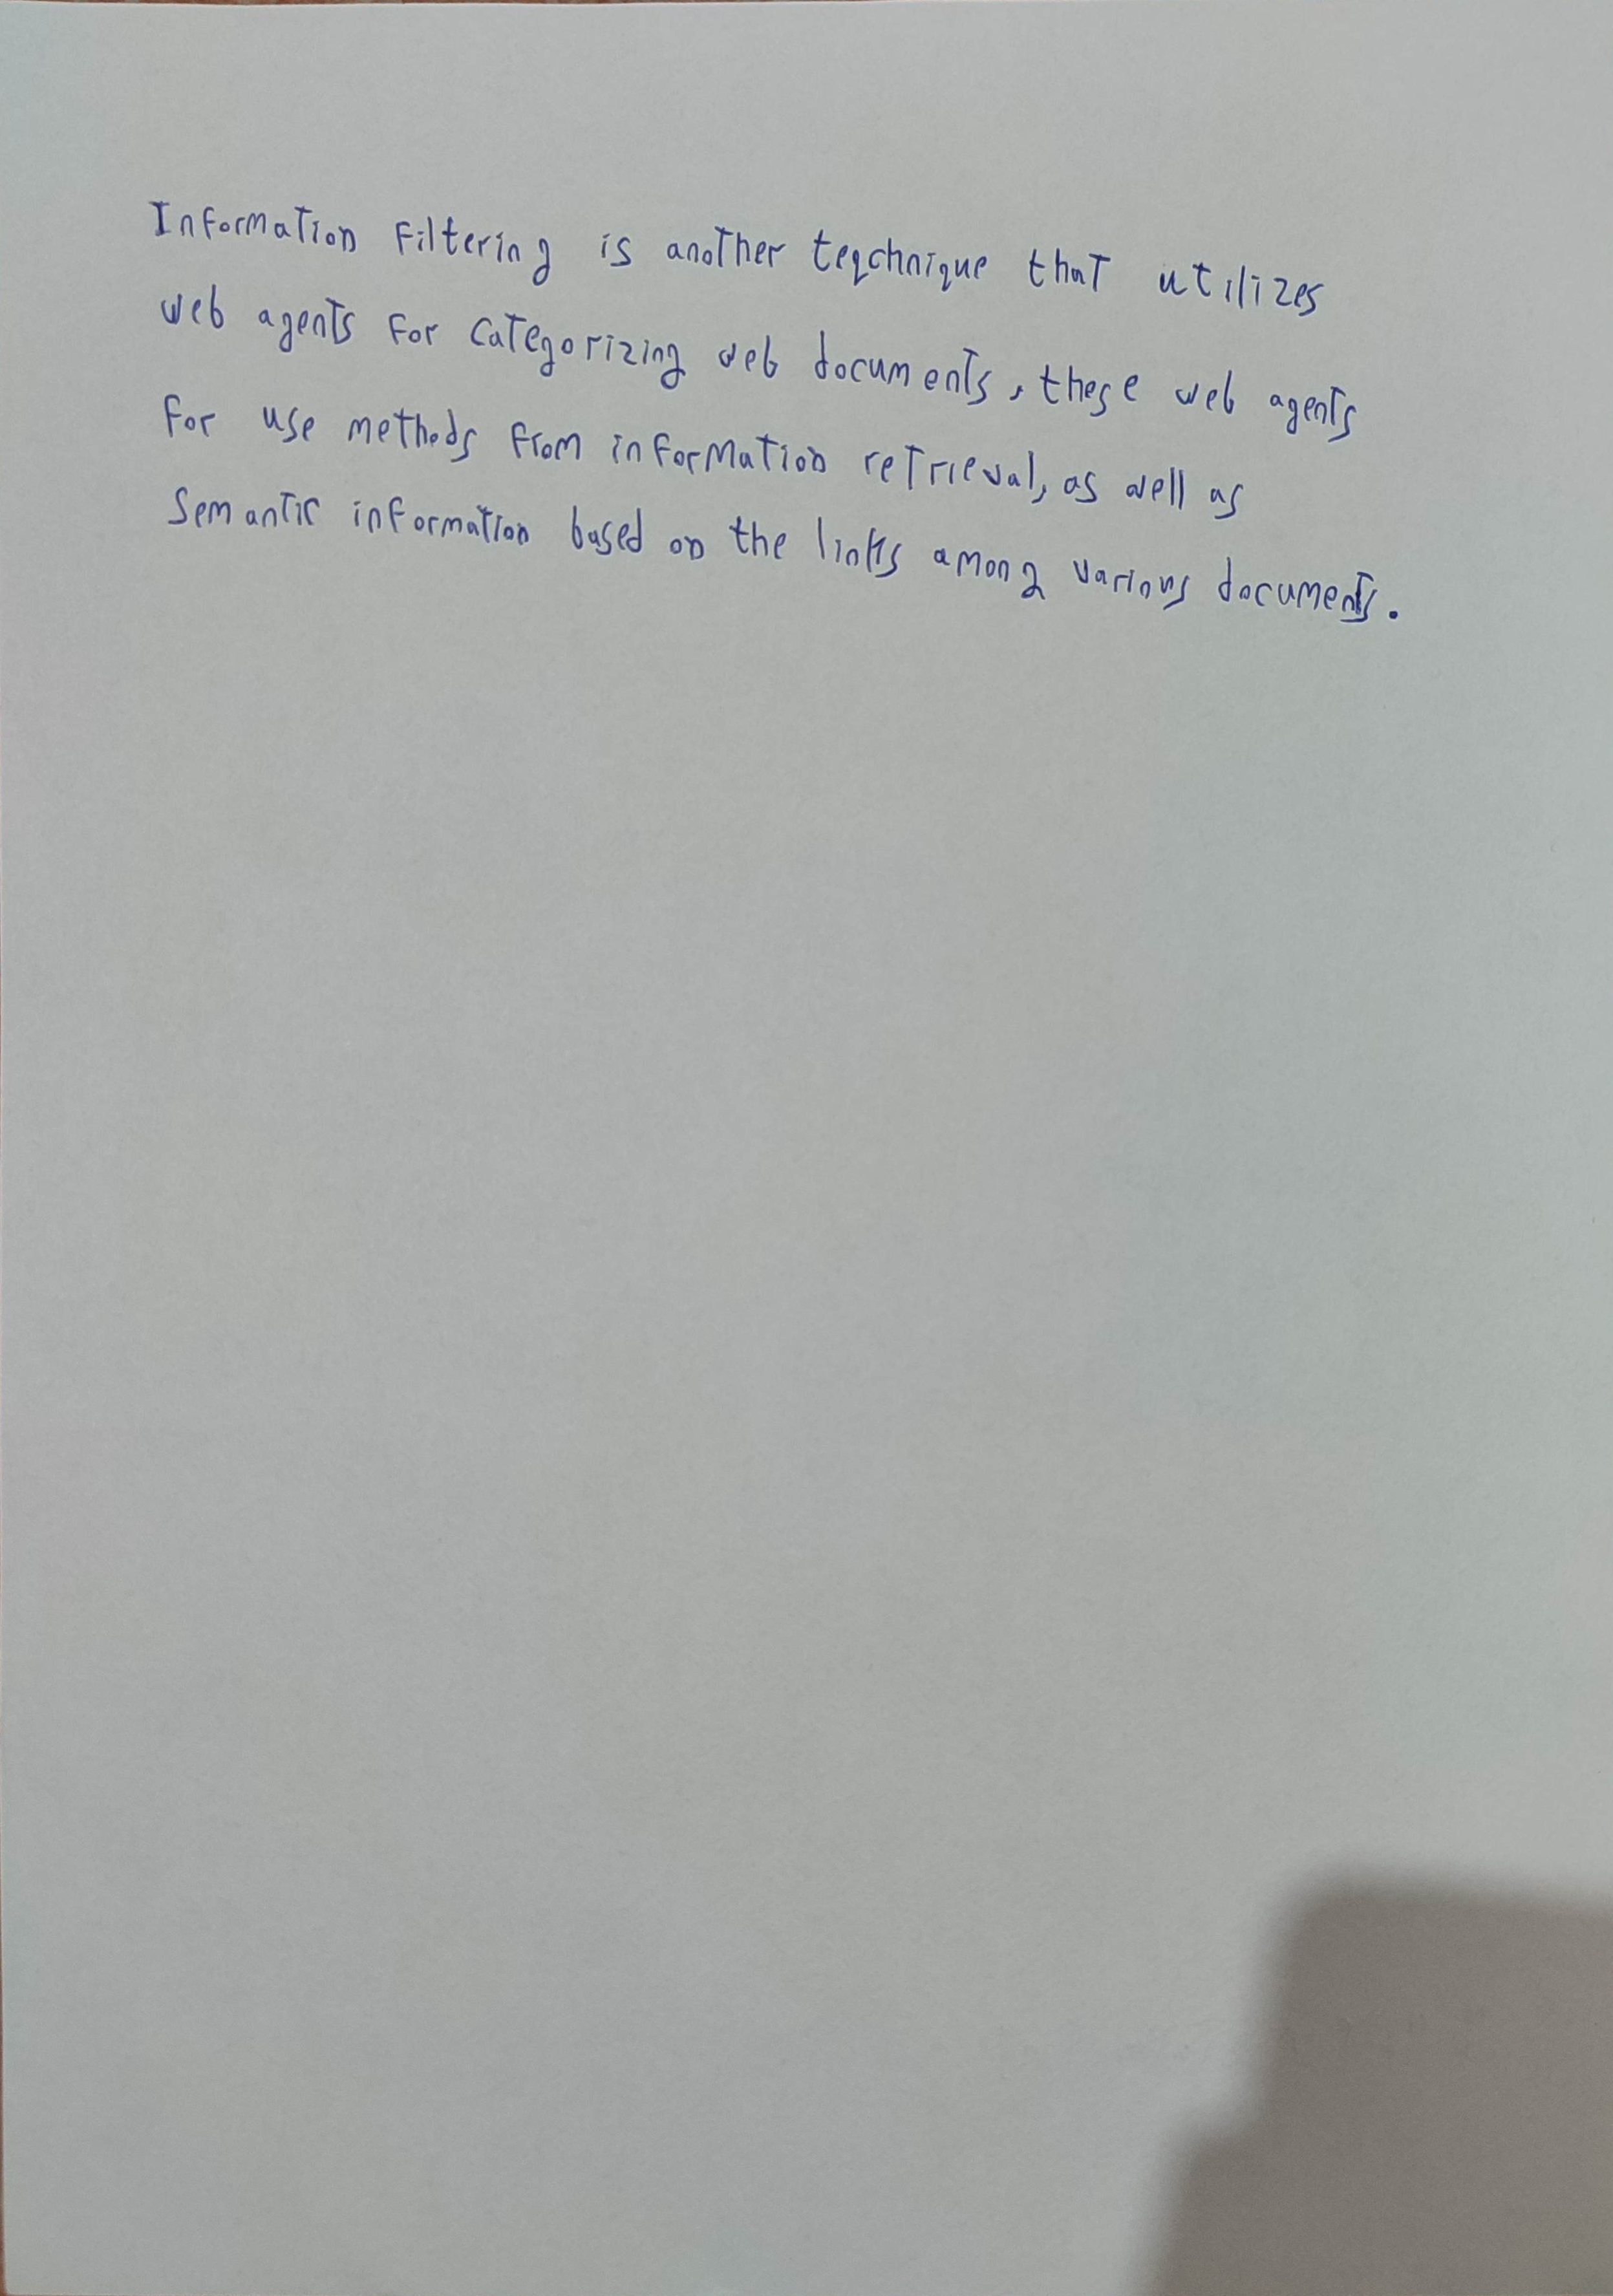 Information Filtering is another teqchnique that utilizes
web agents for categorizing web documents, these web agents
for use methods from information retrieval, as well as
semantic information based on the links among various documents.